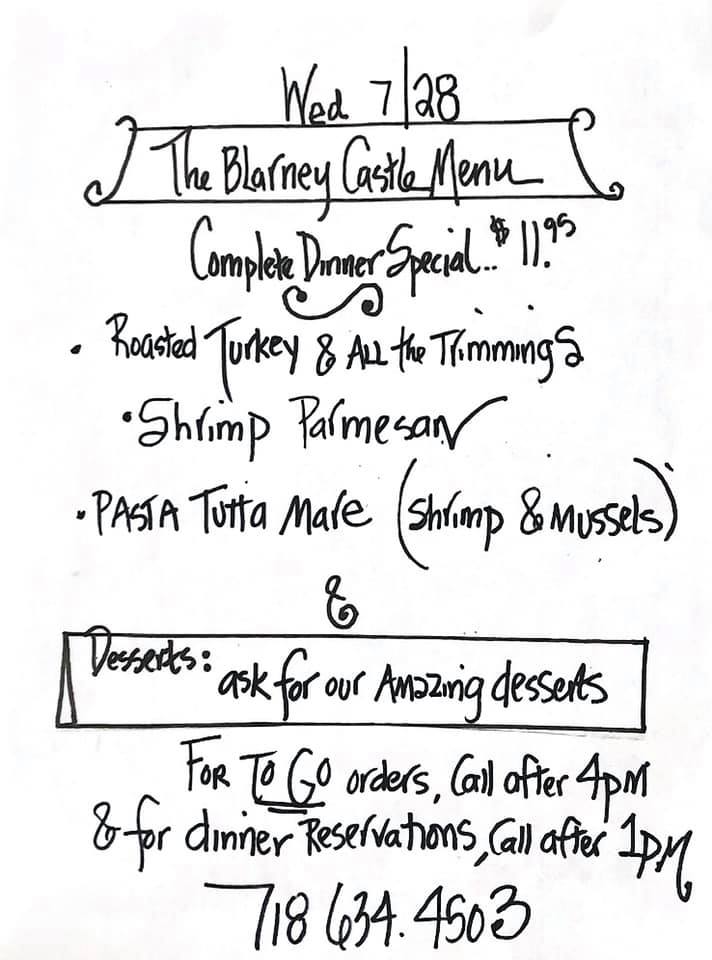 Wed 7/28
The Blarney Castle Menu
Complete Dinner Special... $11.95
• Roasted Turkey & All the Trimmings
• Shrimp Parmesan
• PASTA Tutta Mare (Shrimp & Mussels)
&
Desserts: ask for our Amazing desserts
For To Go orders, Call after 4pm
& for dinner Reservations, Call after 1pm
718 634.4503